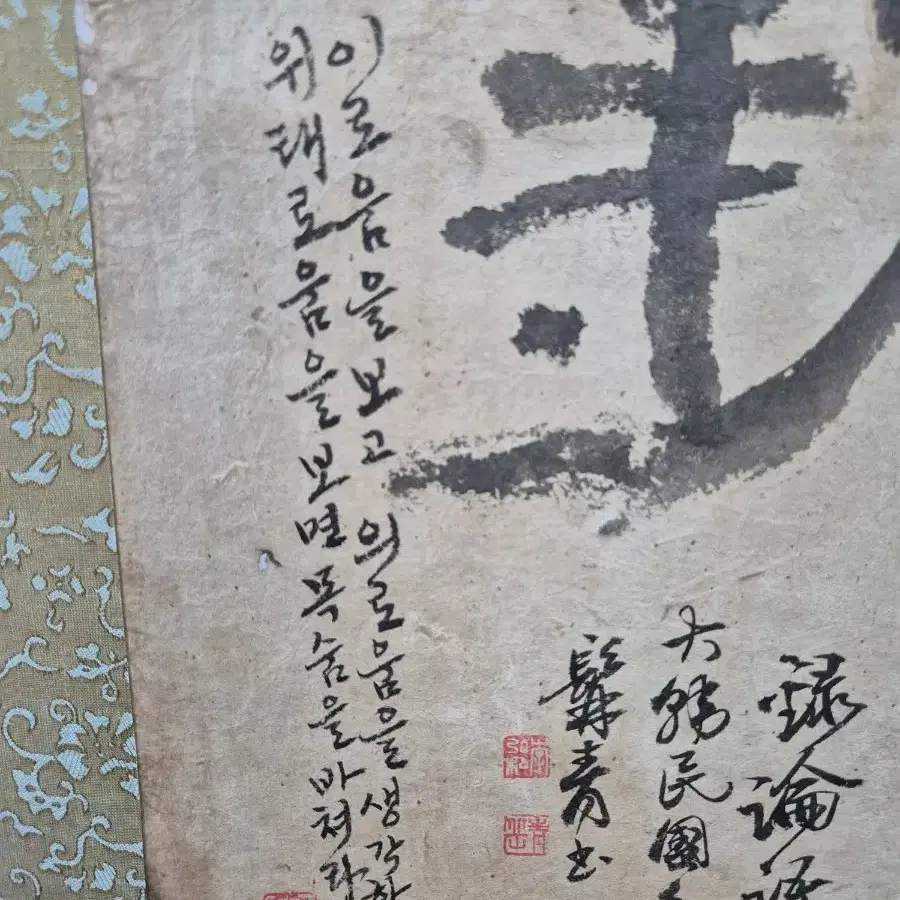 錄論語
大韓民國
青书
이로움을 보고 의로움을 생각하
위태로움을 보면 목숨을 마쳐라